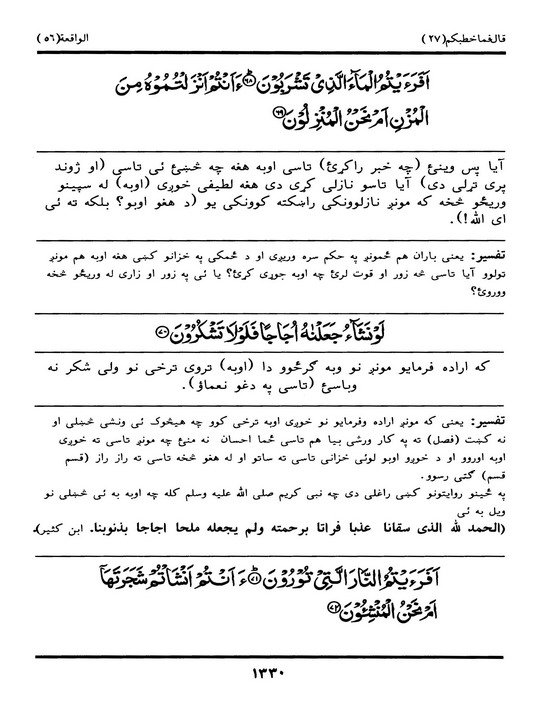 قال فما خطبكم (٢٧) الواقعة (٥٦)
اَفَرَءَيْتُمُ الْمَآءَ الَّذِىْ تَشْرَبُوْنَ ﴿٦٨﴾ ءَاَنْتُمْ اَنْزَلْتُمُوْهُ مِنَ
الْمُزْنِ اَمْ نَحْنُ الْمُنْزِلُوْنَ ﴿٦٩﴾
آیا پس وینئ (چه خبر راکړئ) تاسی اوبه هغه چه څښئ ئی تاسی (او ژوند
پری تړلی دی) آیا تاسو نازلی کړی دی هغه لطیفی خوږی (اوبه) له سپینو
وریځو څخه که مونږ نازلوونکی راښکته کوونکی یو (د هغو اوبو؟ بلکه ته ئی
ای الله!).
تفسیر: یعنی باران هم ځمونږ په حکم سره وریږی او د ځمکی په خزانو کښی هغه اوبه هم مونږ
تولوو آیا تاسی څه زور او قوت لرئ چه اوبه جوړی کړئ؟ یا ئی په زور او زاری له وریځو څخه
ووروئ؟
لَوْ نَشَآءُ جَعَلْنٰهُ اُجَاجًا فَلَوْلَا تَشْكُرُوْنَ ﴿٧٠﴾
که اراده فرمایو مونږ نو وبه ګرځوو دا (اوبه) تروی ترخی نو ولی شکر نه
وباسئ (تاسی په دغو نعماؤ).
تفسیر: یعنی که مونږ اراده وفرمایو نو خوږی اوبه ترخی کوو چه هیڅوک ئی ونشی څښلی او
نه کښت (فصل) ته په کار ورشی بیا هم تاسی ځما احسان نه منئ چه مونږ تاسی ته خوږی
اوبه اوروو او د خوږو اوبو لوئی خزانی تاسی ته ساتو او له هغو څخه تاسی ته راز راز (قسم
قسم) ګټی رسوو.
په ځینو روایتونو کښی راغلی دی چه نبی کریم صلی الله علیه وسلم کله چه اوبه به ئی څښلی نو
ویل به ئی
(الحمد لله الذی سقانا عذبا فراتا برحمته ولم یجعله ملحا اجاجا بذنوبنا. ابن کثیر).
اَفَرَءَيْتُمُ النَّارَ الَّتِىْ تُوْرُوْنَ ﴿٧١﴾ ءَاَنْتُمْ اَنْشَاْتُمْ شَجَرَتَهَاۤ
اَمْ نَحْنُ الْمُنْشِئُوْنَ ﴿٧٢﴾
١٣٣٠